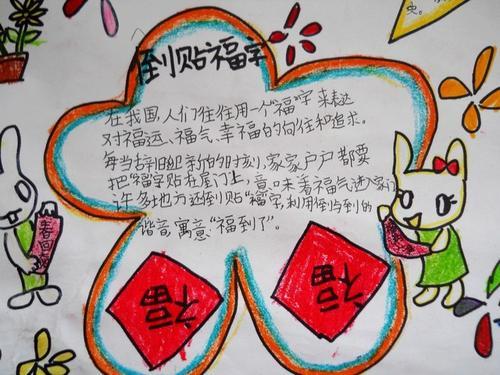 倒贴福字
在我国,人们往往用一个"福"字来表达
对福运、福气、幸福的向往和追求。
每当辞旧迎新的时刻,家家户户都要
把"福"字贴在屋门上,意味着福气进入家门
许多地方还倒贴"福"字,利用倒与到的
谐音,寓意"福到了"。
福
福
春回